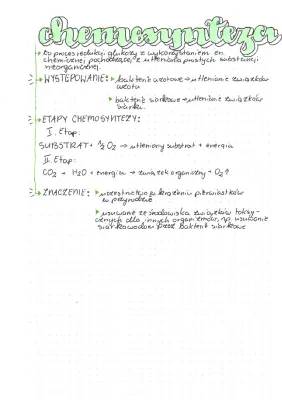 chemosynteza
to proces redukcji glukozy z wykorzystaniem en.
chemicznej pochodzącej z utleniania prostych substancji
nieorganicznej.
WYSTĘPOWANIE: bakterie azotowe → utlenianie związków
azotu
bakterie siarkowe → utlenianie związków
siarki.
ETAPY CHEMOSYNTEZY:
I. Etap:
SUBSTRAT + ½ O2 → utleniony substrat + energia
II. Etap:
CO2 + H2O + energia → związek organiczny + O2↑
ZNACZENIE: uczestniczą w krążeniu pierwiastków
w przyrodzie
usuwanie ze środowiska związków toksy-
cznych dla innych organizmów, np. usuwanie
siarkowodoru przez bakterie siarkowe